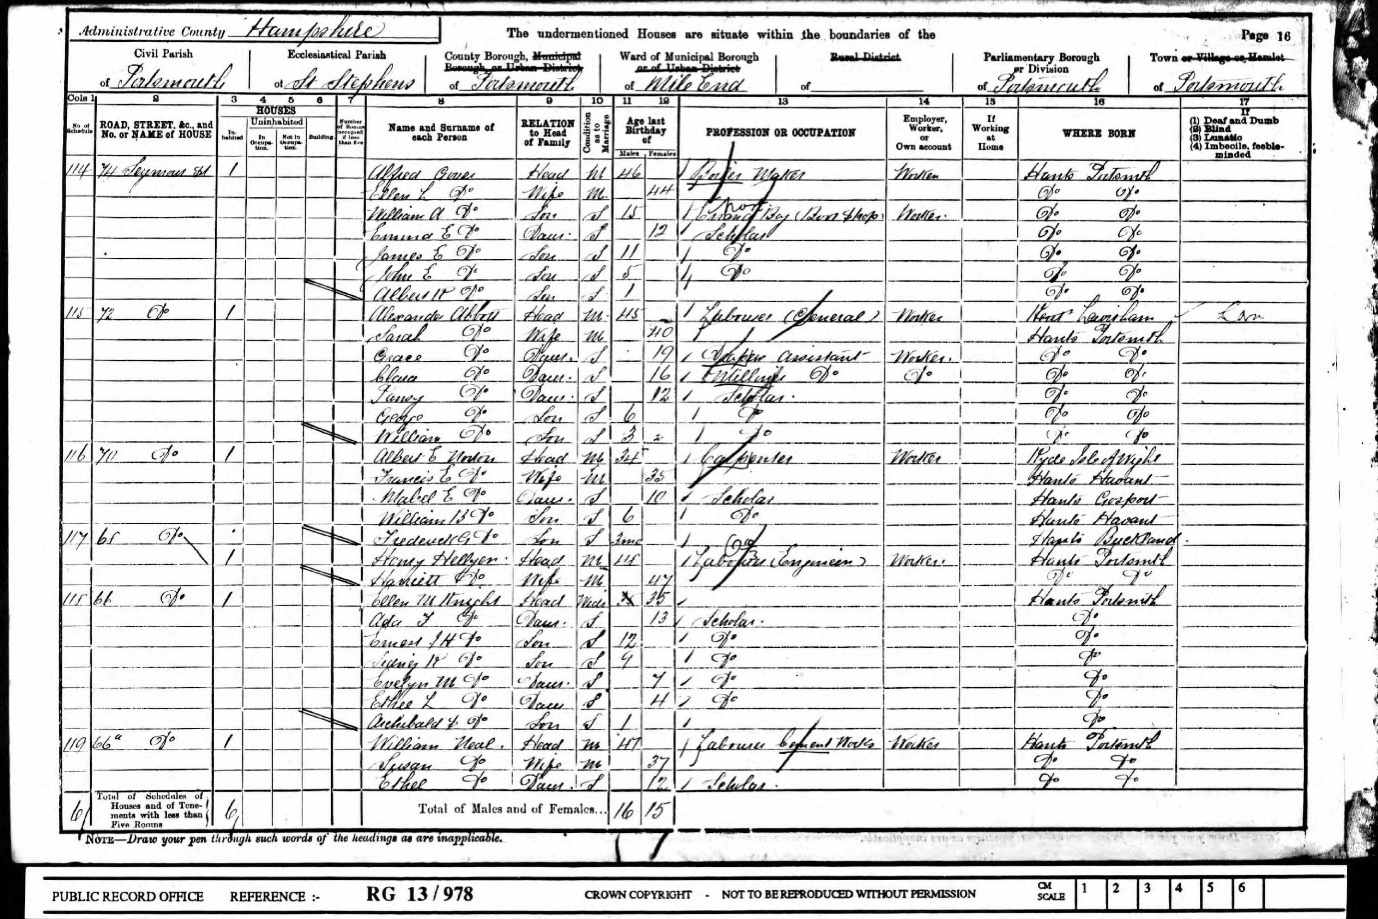 Administrative County Hampshire
The undermentioned Houses are situate within the boundaries of the
Page 16
Civil Parish Ecclesiastical Parish County Borough, Municipal Borough, or Urban District Ward of Municipal Borough or of Urban District Rural District Parliamentary Borough or Division Town or Village or Hamlet
of Portsmouth of St Stephens of Portsmouth of Mile End of of Portsmouth of Portsmouth
Cols 1 2 3 4 5 6 7 8 9 10 11 12 13 14 15 16 17
No of Schedule ROAD, STREET, &c., and No. or NAME of HOUSE HOUSES In-habited Uninhabited In Occupa-tion. Not in Occupa-tion. Building. Number of Rooms occupied if less than five Name and Surname of each Person RELATION to Head of Family Condition as to Marriage Age last Birthday of Males Females PROFESSION OR OCCUPATION Employer, Worker, or Own account If Working at Home WHERE BORN (1) Deaf and Dumb (2) Blind (3) Lunatic (4) Imbecile, feeble-minded
114 74 Seymour St 1 Alfred Head M 46 Boiler Maker Worker Hants Portsmth
Ellen L Do Wife M 44 Do Do
William A Do Son S 15 Errand Boy (Boot Shop) Worker Do Do
Emma E Do Daur S 12 Scholar Do Do
James E Do Son S 11 Do Do Do
John E Do Son S 5 Do Do Do
Albert Do Son S 1 Do Do
115 72 Do 1 Alexander Abbott Head M 45 Labourer (General) Worker Kent Lewisham
Sarah Do Wife M 40 Hants Portsmth
Grace Do Daur S 19 Drapers Assistant Worker Do Do
Clara Do Daur S 16 Do Do Do Do
Do Daur S 12 Scholar Do Do
George Do Son S 6 Do Do Do
William Do Son S 3 Do Do Do
116 70 Do 1 Albert E Norton Head M 34 Carpenter Worker Ryde Isle of Wight
Francis E Do Wife M 35 Hants Havant
Mabel E Do Daur S 10 Scholar Hants Gosport
William B Do Son S 6 Do Hants Havant
Frederick G Do Son S 3mo Hants Buckland
117 68 Do 1 Henry Hellyer Head M Labourer (Engineer) Worker Hants Portsmth
Harriett Do Wife M 47 Do Do
118 66 Do 1 Ellen M Knight Head Wid 35 Hants Portsmth
Ada F Do Daur S 13 Scholar Do
Ernest J H Do Son S 12 Do Do
Sidney Do Son S 9 Do Do
Evelyn M Do Daur S 7 Do Do
Ethel L Do Daur S 4 Do Do
Archibald Do Son S 1 Do
119 66a Do 1 William Neal Head M 47 Labourer Cement Works Worker Hants Portsmth
Susan Do Wife M 37 Do Do
Ethel Do Daur S 12 Scholar Do Do
6 Total of Schedules of Houses and of Tene-ments with less than Five Rooms 6 Total of Males and of Females... 16 15
NOTE—Draw your pen through such words of the headings as are inapplicable.
PUBLIC RECORD OFFICE REFERENCE :- RG 13/978 CROWN COPYRIGHT - NOT TO BE REPRODUCED WITHOUT PERMISSION CM SCALE 1 2 3 4 5 6